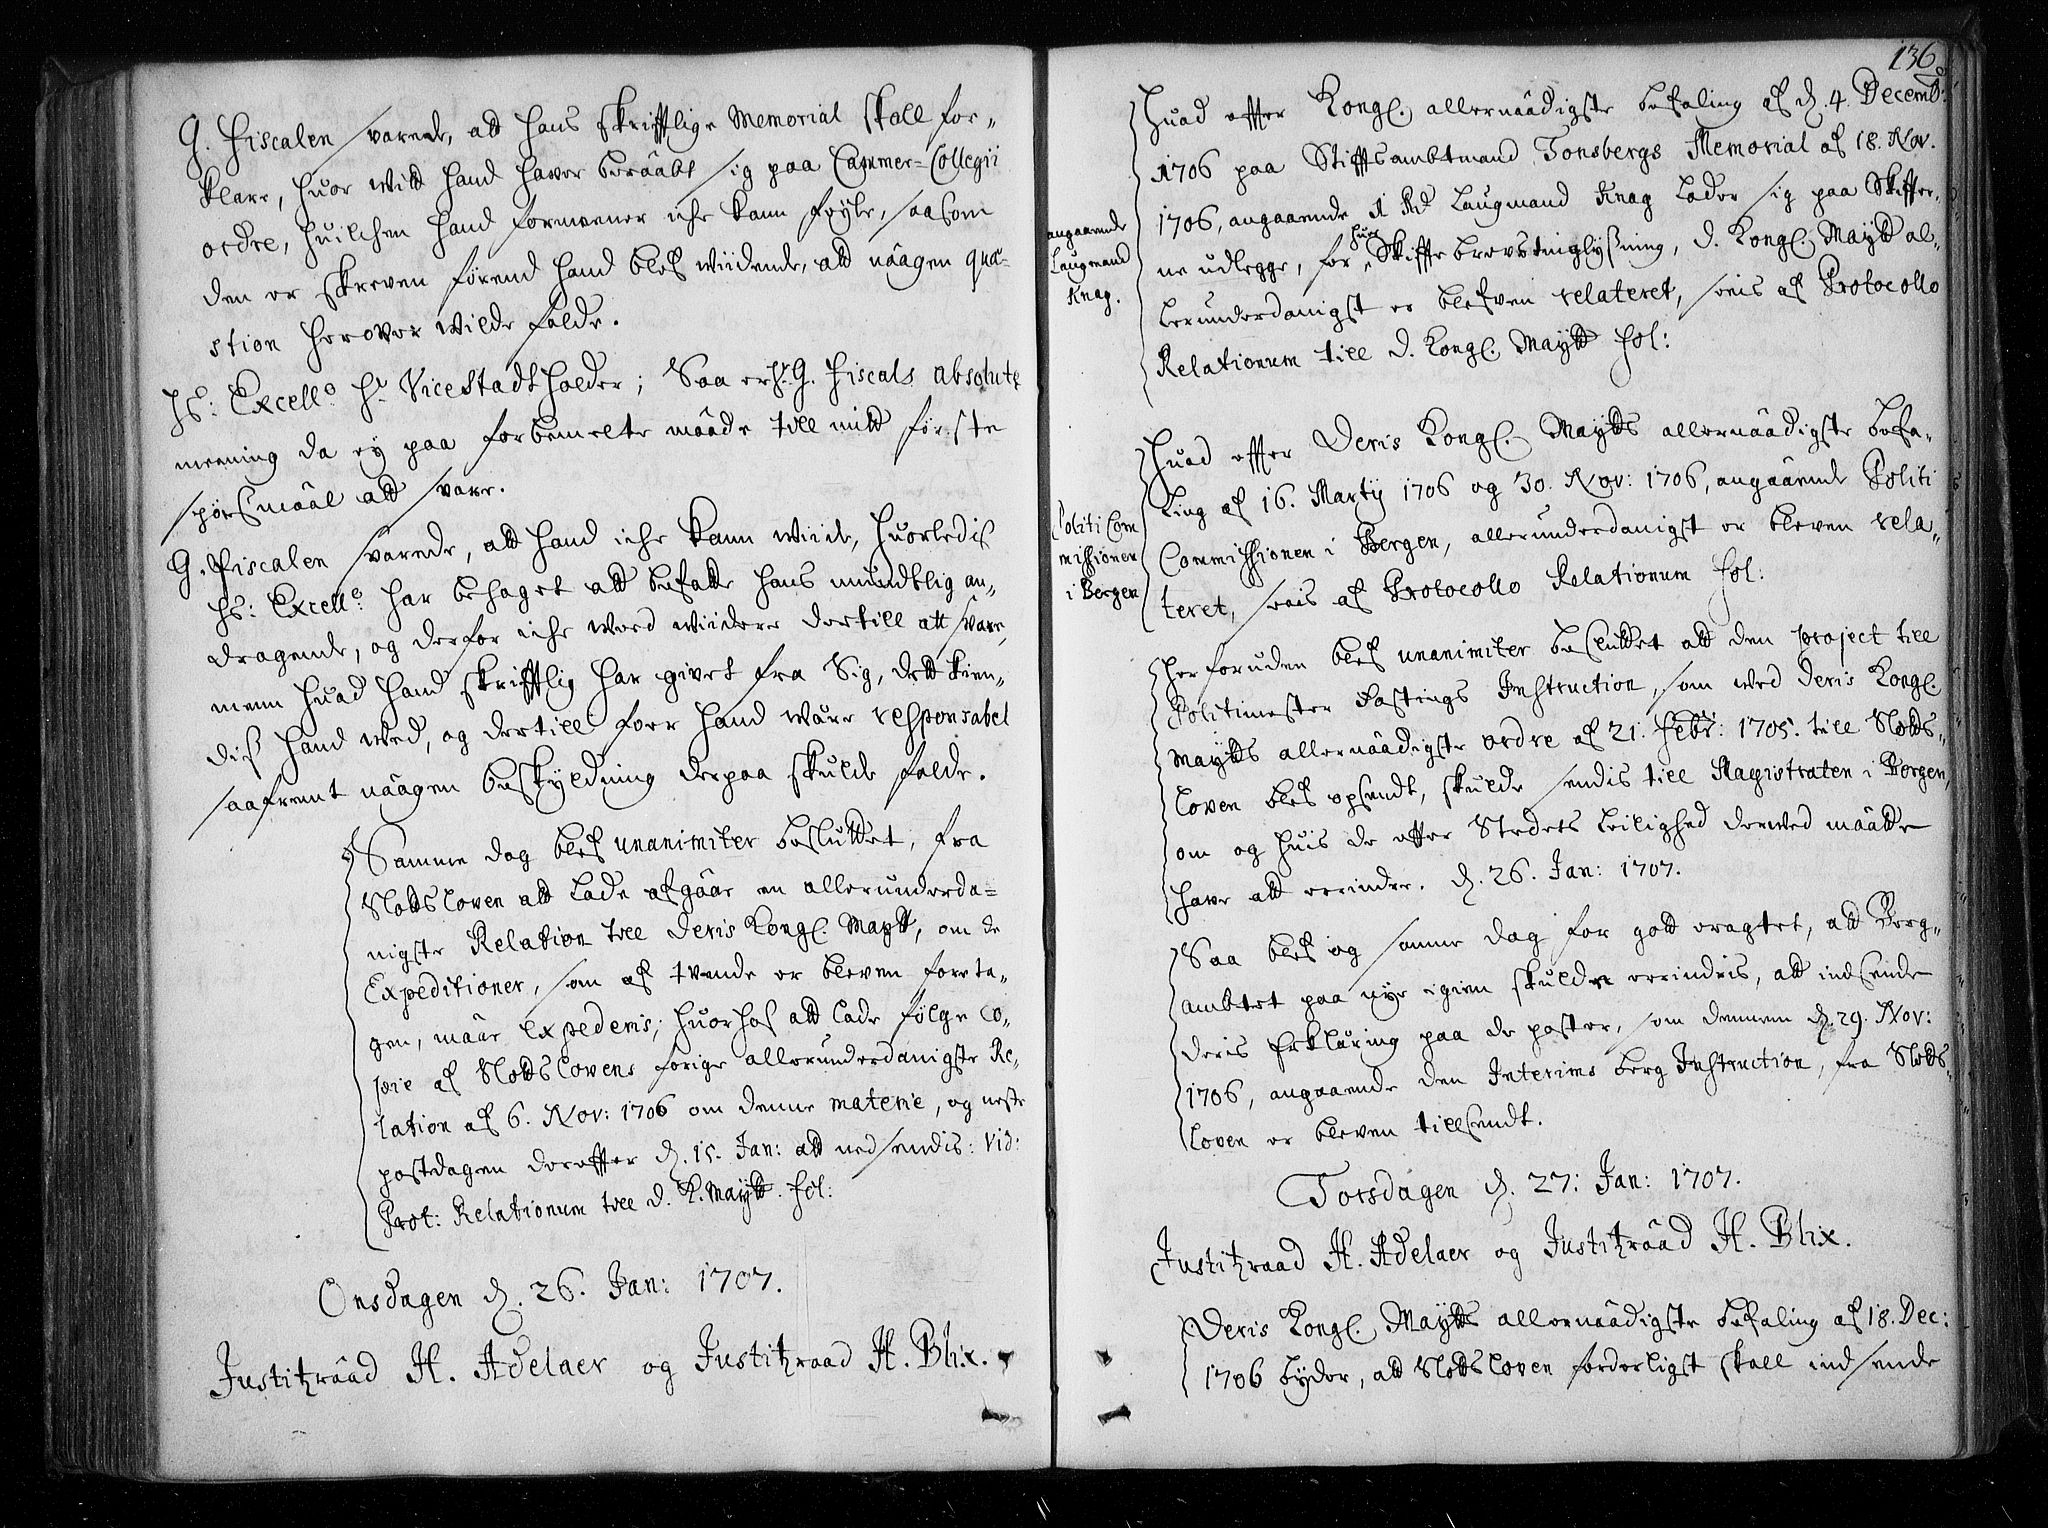 G. Fiscalen svarede, att hans skrifftlige Memorial skall for-
klare, huor witt hand hafver beraabt sig paa Cammer-Collegii
ordre, huilchen hand formeener iche kann feyle, saasom
den er skreven førend hand blef wiidende, att naagen quæ-
stion herover wilde falde.
Hs: Excell: Hr ViceStadtholder; Saa er hr G. Fiscals absolute
meening da ey paa forbemelte maade till mitt første
spørsmaal att svare.
G. Fiscalen svarede, att hand iche kann wiide, huorledis
Hs: Excell: har behaget att befatte hans mundtlig an-
dragende, og derfor iche weed wiidere dertill att svare,
menn huad hand skrifftlig har givet fra Sig, dett kien-
dis hand wed, og dertill foer hand være responsabel
saafremt naagen beskyldning derpaa skulde falde.
Samme dag blef unanimiter besluttet, fra
Slottsloven att lade afgaae en allerunderda-
nigste Relation till Deris Kongl. Maytt, om de
Expeditioner, som af tvende er bleven foreta-
gen, maae expederis; huorhos att lade følge Co-
pie af Slottslovens forige allerunderdanigste Re-
lation af 6. Nov: 1706 om denne materie, og neste
postdagen derefter d. 15. Jan: att nedsendis: vid:
Prot: Relationum till d. K. Maytt. fol:
Onsdagen d. 26. Jan: 1707.
Justitzraad H. Adelaer og Justitzraad H. Blix.
136.
Huad efter Kongl. allernaadigste befaling af d. 4. Decemb:
1706 paa Stifftsambtmand Tonsbergs Memorial af 18. Nov.
1706, angaaende 1 Rd Laugmand Knag lader sig paa Skifter-
ne udlegge, for huer Skiftebrevs tinglysning, d. Kongl. Maytt al-
lerunderdanigst er blefven relateret, seis af Protocollo
Relationum till d. Kongl. Maytt fol:
angaaende
Laugmand
Knag.
Huad efter Deris Kongl. Maytts allernaadigste befa-
ling af 16. Marty 1706 og 30. Nov: 1706, angaaende Politi
Commissionen i Bergen, allerunderdanigst er bleven rela-
teret, seis af Protocollo Relationum fol:
Politi Com
missionen
i Bergen
Herforuden blef unanimiter besluttet att den project till
Politimester Fastings Instruction, som wed Deris Kongl.
Maytts allernaadigste ordre af 21. Febr: 1705. till Slotts-
loven blef opsendt, skulde sendis till Magistraten i Bergen,
om og huis de efter Stedets leilighed derwed maatte
have att erindre. d. 26. Jan: 1707.
Saa blef og samme dag for gott eragtet, att Berg-
ambtet paa nye igien skulde erindris, att indsende
deris Erklæring paa de poster, som dennem d. 29. Nov:
1706, angaaende den Interims berg Instruction, fra Slotts-
loven er bleven tillsendt.
Torsdagen d. 27: Jan: 1707.
Justitzraad H. Adelaer og Justitzraad H. Blix.
Deris Kongl. Maytts allernaadigste befaling af 18. Dec:
1706 byder, att Slottsloven forderligst skall indsende